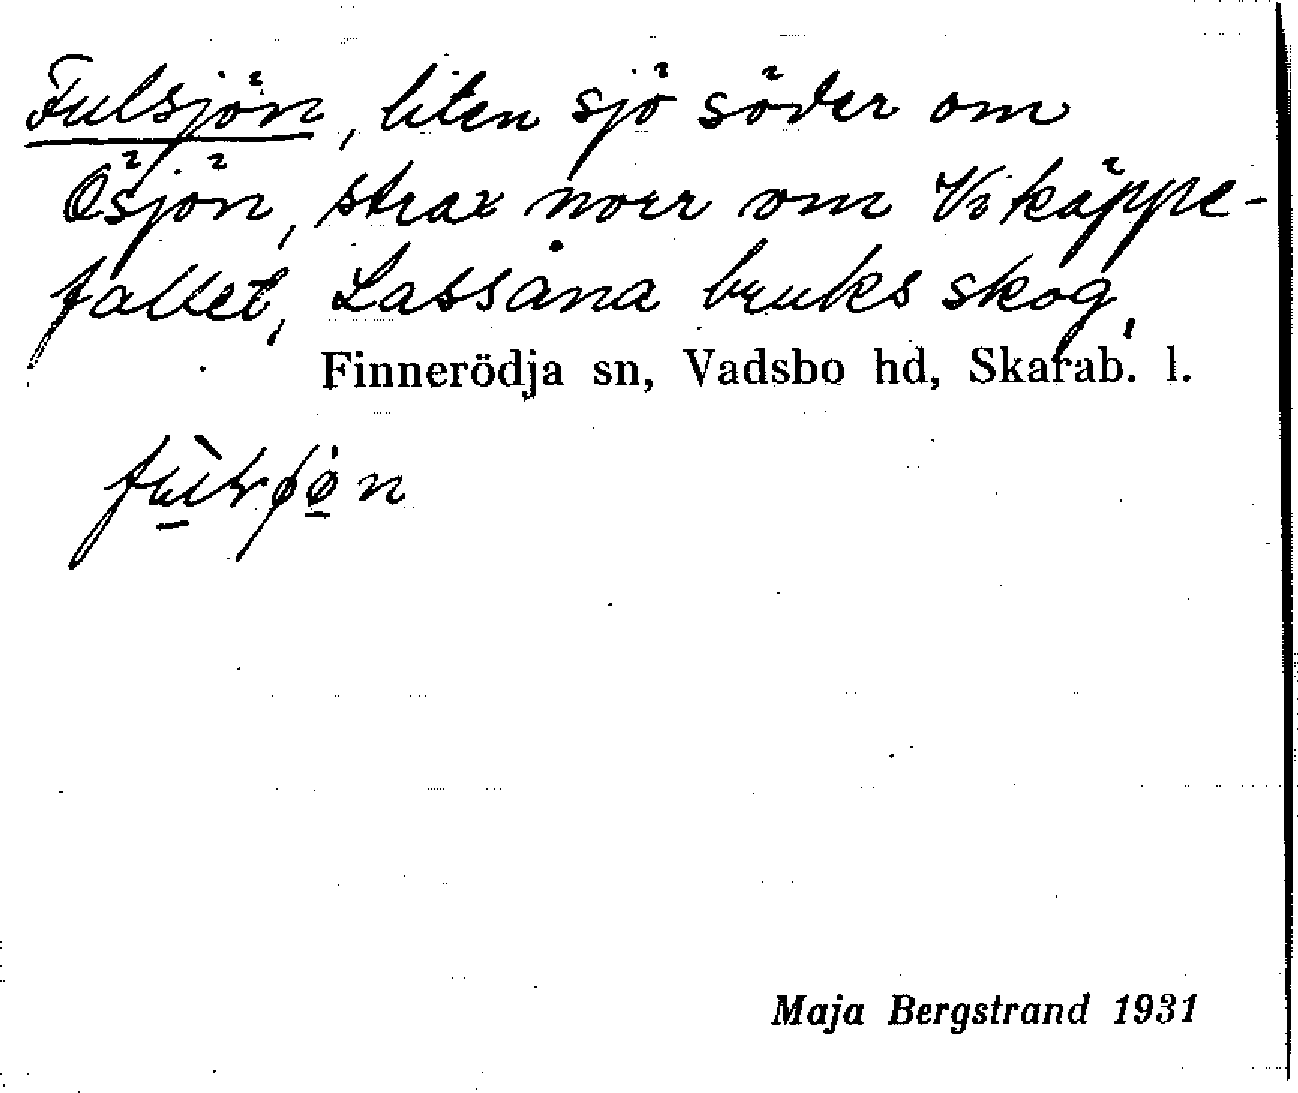 Fulsjön, liten sjö söder om
Ösjön, strax norr om Vikäppe-
fallet, Lassåna bruks skog,
Finnerödja sn, Vadsbo hd, Skarab. l.
Maja Bergstrand 1931